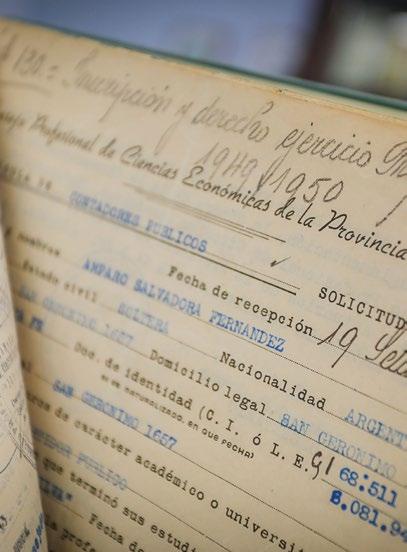 130.= Inscripción y derecho ejercicio
1949 y 1950
Profesional de Ciencias Económicas de la Provincia
CONTADORES PUBLICOS
SOLICITUD
Fecha de recepción 19
nombres AMPARO SALVADORA FERNANDEZ
Estado civil SOLTERA Nacionalidad ARGENT
SAN GERONIMO 1657 Domicilio legal SAN GERONIMO
FE Doc. de identidad (C. I. ó L. E. 68:511
SI ES NATURALIZADO, EN QUE FECHA) 8.081.94
SAN GERONIMO 1657
de carácter académico o universit
PUBLICO
que terminó sus estudi
Fecha de
la profe